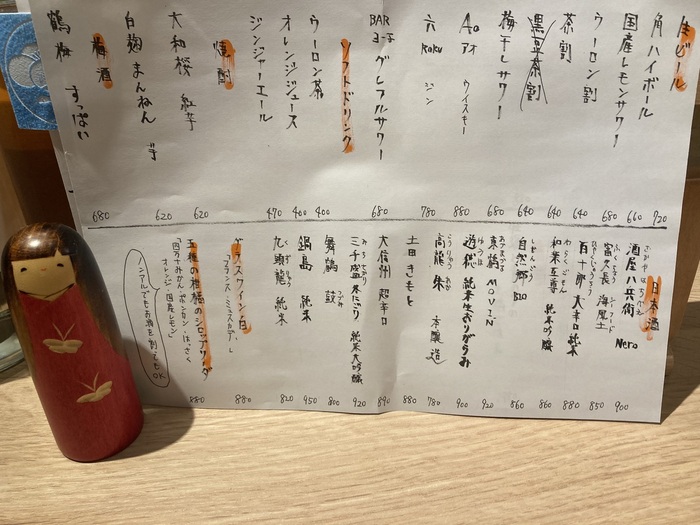 生ビール
角ハイボール 720
国産レモンサワー 660
ウーロン割 680
茶割 640
黒豆茶割 640
梅干しサワー 680
Ao アオ ウイスキー 880
六 Roku ジン 780
BAR グレフルサワー
ソフトドリンク
ウーロン茶 400
オレンジジュース 400
ジンジャーエール 470
焼酎
大和桜 紅芋 620
白麹まんねん 芋 620
梅酒
鶴梅 すっぱい 680
日本酒
酒屋八兵衛 Nero 900
富久長 海風土 850
百十郎 大辛口純米 880
和楽互尊 純米吟醸 860
自然郷 BIO 860
東鶴 MOVIN 920
遊穂 純米生おりがらみ 900
朱 本醸造 780
土田 きもと 880
大信州 超辛口 890
三千盛 本にごり 純米大吟醸 920
舞鶴 鼓 800
鍋島 純米 950
九頭龍 純米 820
グラスワイン白 880
「フランス・ミュスカデ」
五種の柑橘の 880
「四万十みかん・ポンカン・はっさく
オレンジ・国産レモン」
ノンアルでもお酒を割ってもOK